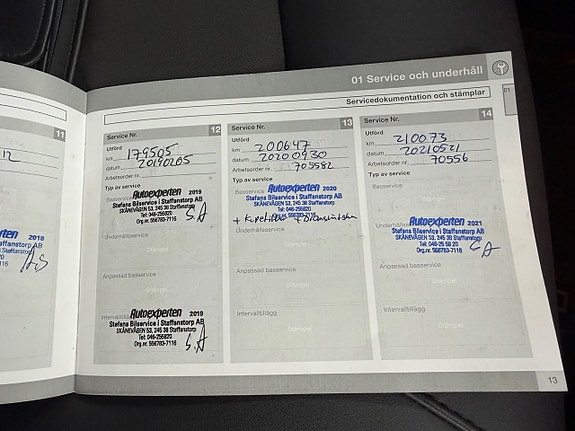 01 Service och underhåll
01
Servicedokumentation och stämplar
11
12
2018
Staffanstorp AB
Service Nr.
12
Utförd
km 179505
datum 20190205
Arbetsorder nr.
Typ av service
Basservice
Autoexperten 2019
Stefans Bilservice i Staffanstorp AB
SKÅNEVÄGEN 53, 245 38 Staffanstorp
Tel: 046-256920
Org.nr. 556783-7116
S.A
Underhållsservice
Stämpel
Anpassad basservice
Stämpel
Intervalltillägg
Autoexperten 2019
Stefans Bilservice i Staffanstorp AB
SKÅNEVÄGEN 53, 245 38 Staffanstorp
Tel: 046-256920
Org.nr. 556783-7116
S.A
Service Nr.
13
Utförd
km 200647
datum 20200930
Arbetsorder nr. 705582
Typ av service
Basservice
Autoexperten 2020
Stefans Bilservice i Staffanstorp AB
SKÅNEVÄGEN 53, 245 38 Staffanstorp
Tel: 046-256920
Org.nr. 556783-7116
Underhållsservice
Stämpel
Anpassad basservice
Stämpel
Intervalltillägg
Stämpel
Service Nr.
14
Utförd
km 210073
datum 20210521
Arbetsorder nr. 70556
Typ av service
Basservice
Stämpel
Underhållsservice
Autoexperten 2021
Stefans Bilservice i Staffanstorp AB
SKÅNEVÄGEN 53, 245 38 Staffanstorp
Tel: 046-25 69 20
Org.nr. 556783-7116
SA
Anpassad basservice
Stämpel
Intervalltillägg
Stämpel
13